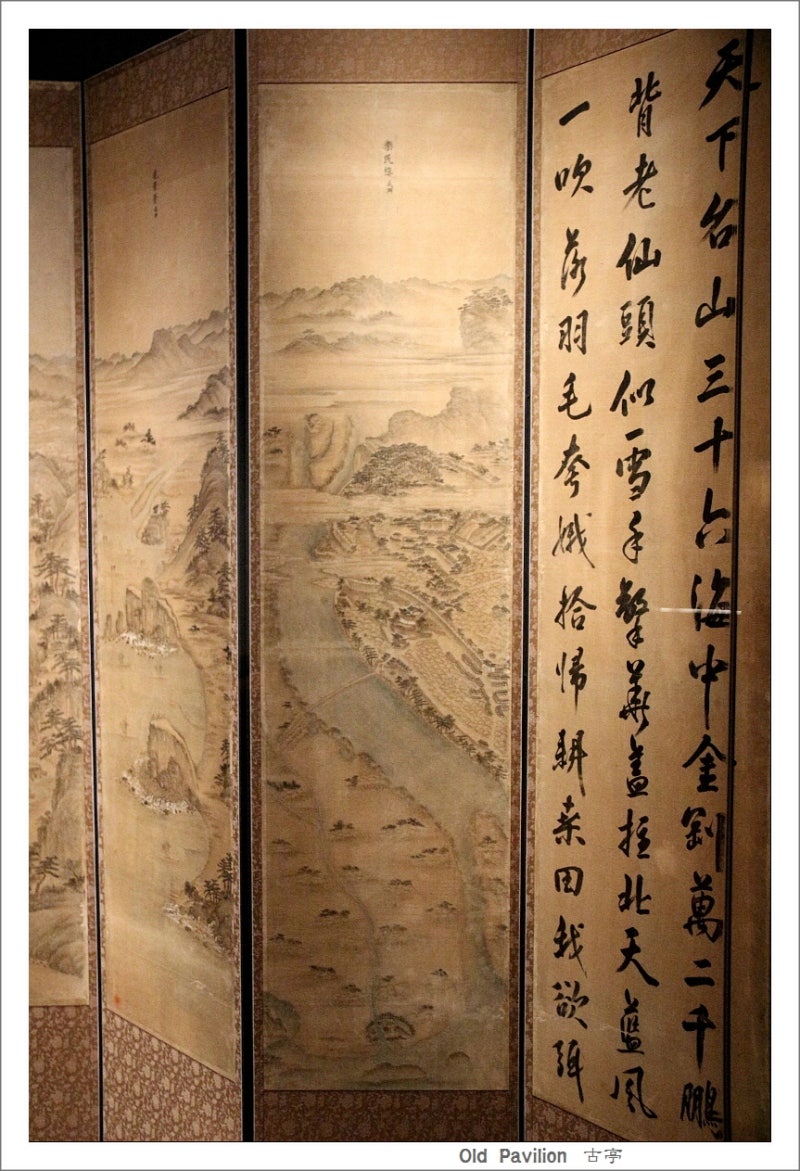 天下名山三十六海中金剛萬二千鵬
背老仙頭似雪手擎華盖拄北天藍風
一吹落羽毛夸娥拾帰耕桑田我欲弭
樂民樓
Old Pavilion 古亭